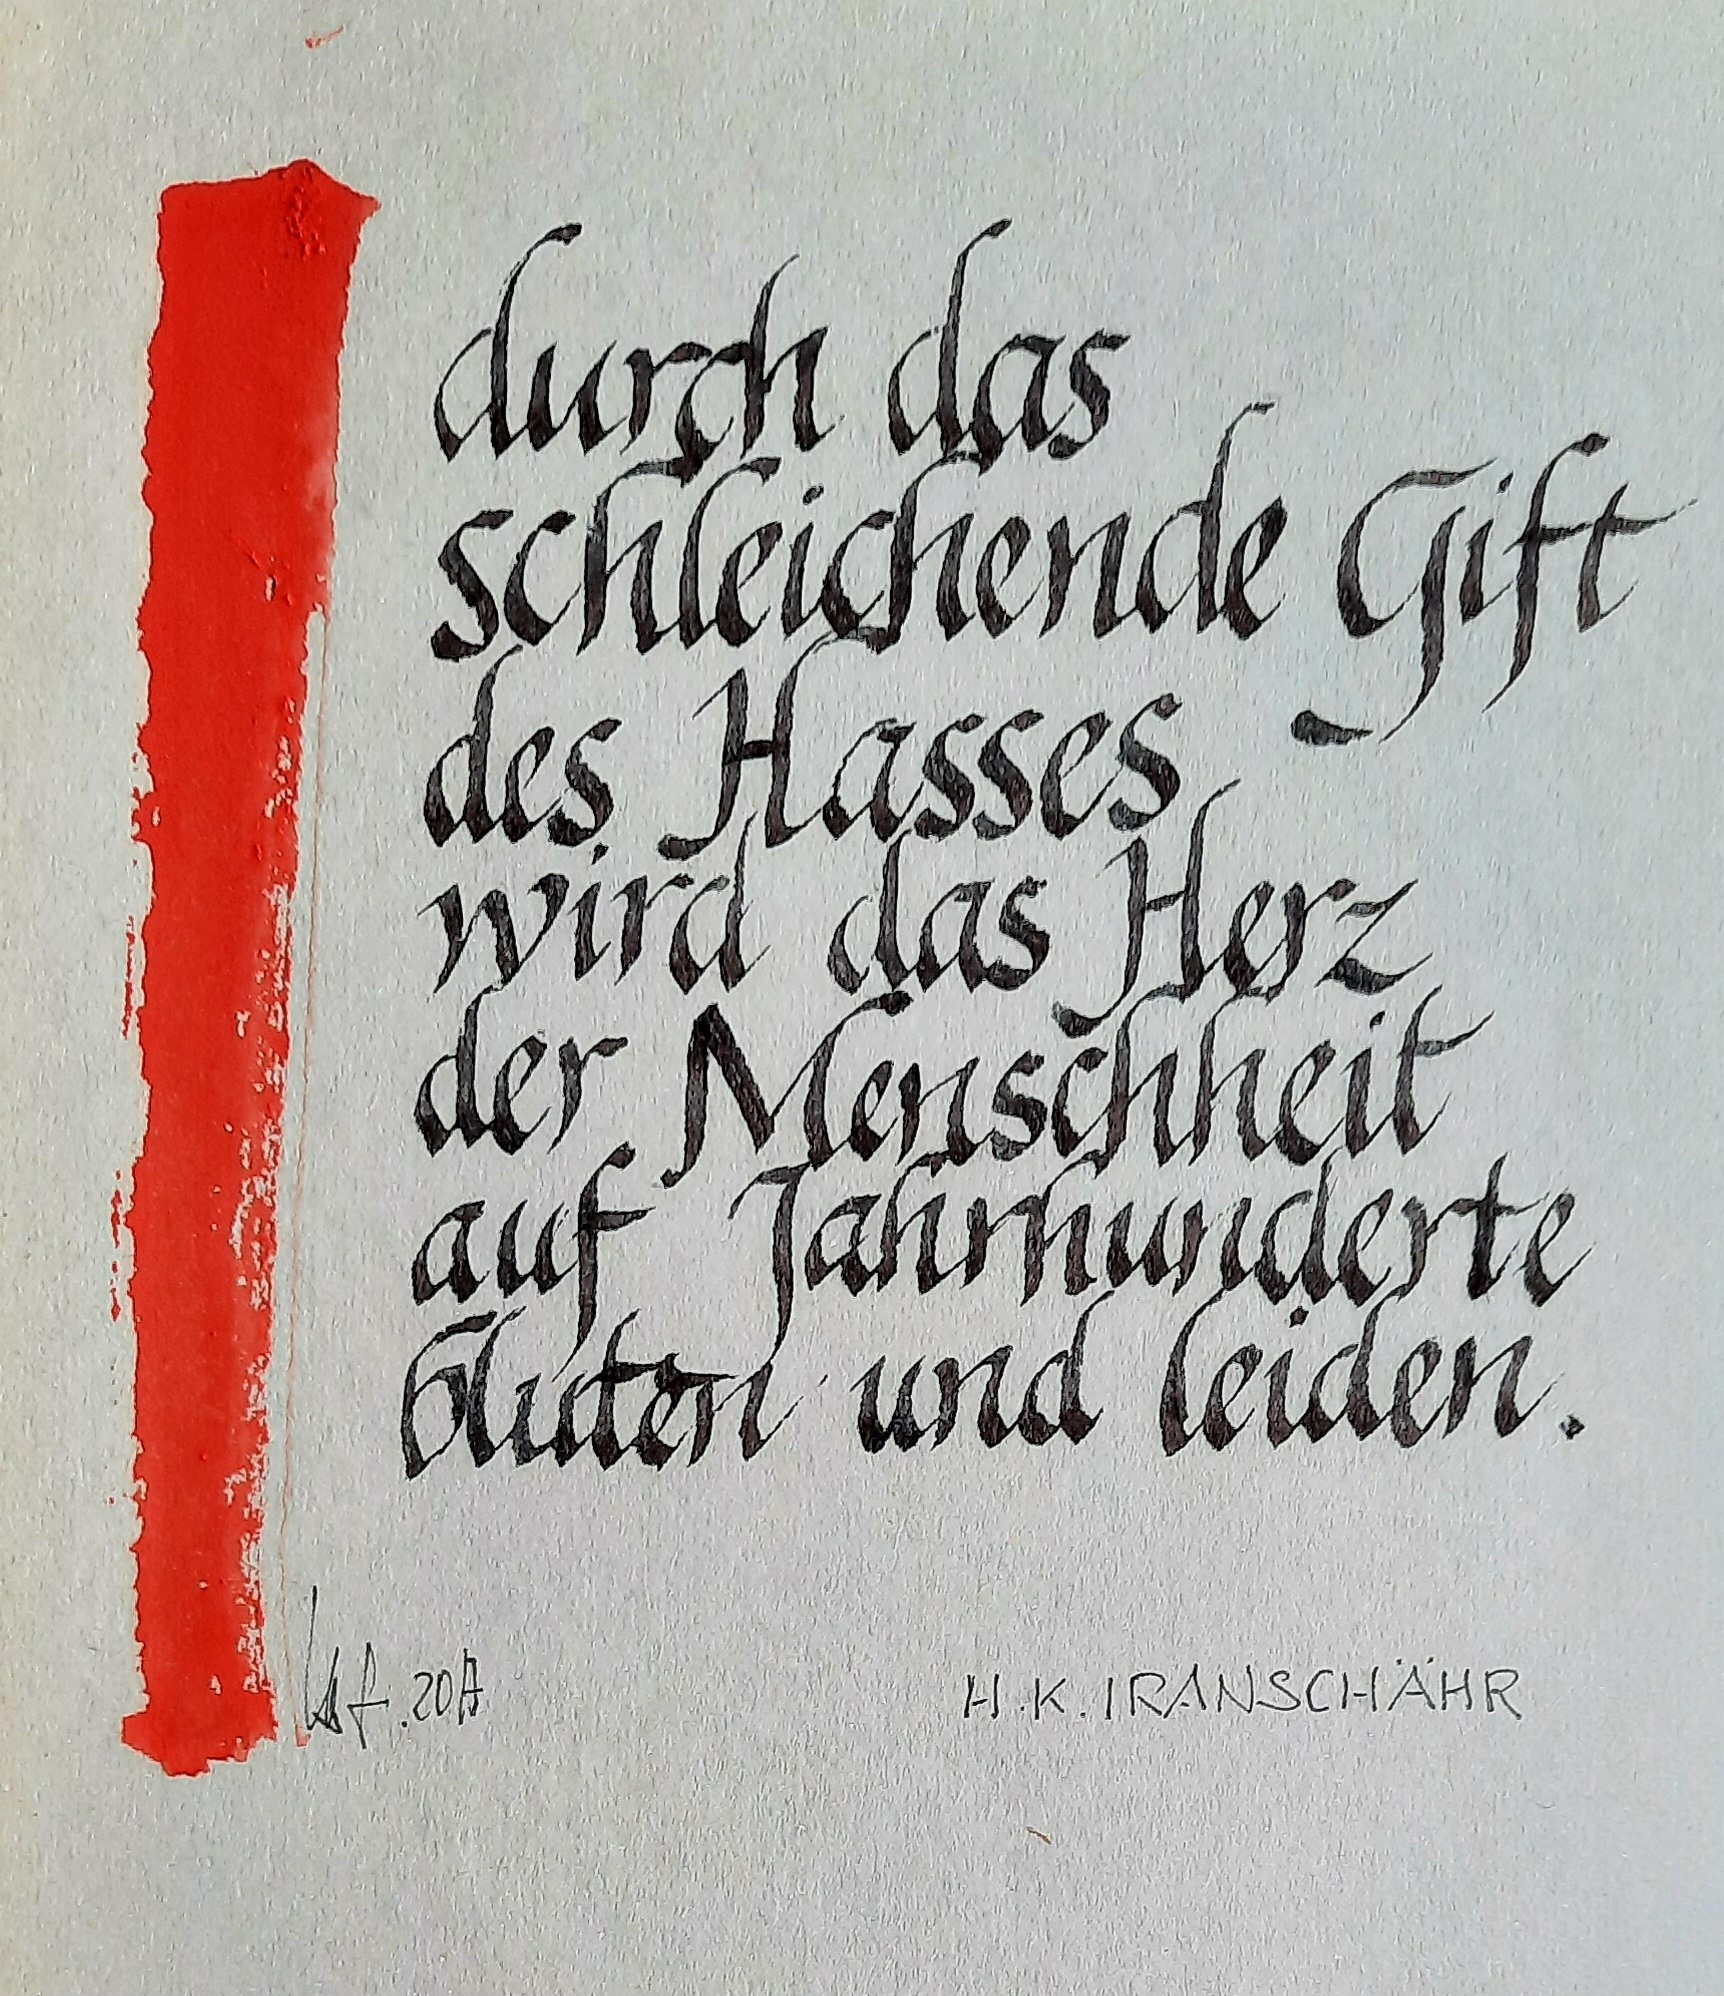 durch das
schleichende Gift
des Hasses
wird das Herz
der Menschheit
auf Jahrhunderte
bluten und leiden.
H.K. IRANSCHÄHR